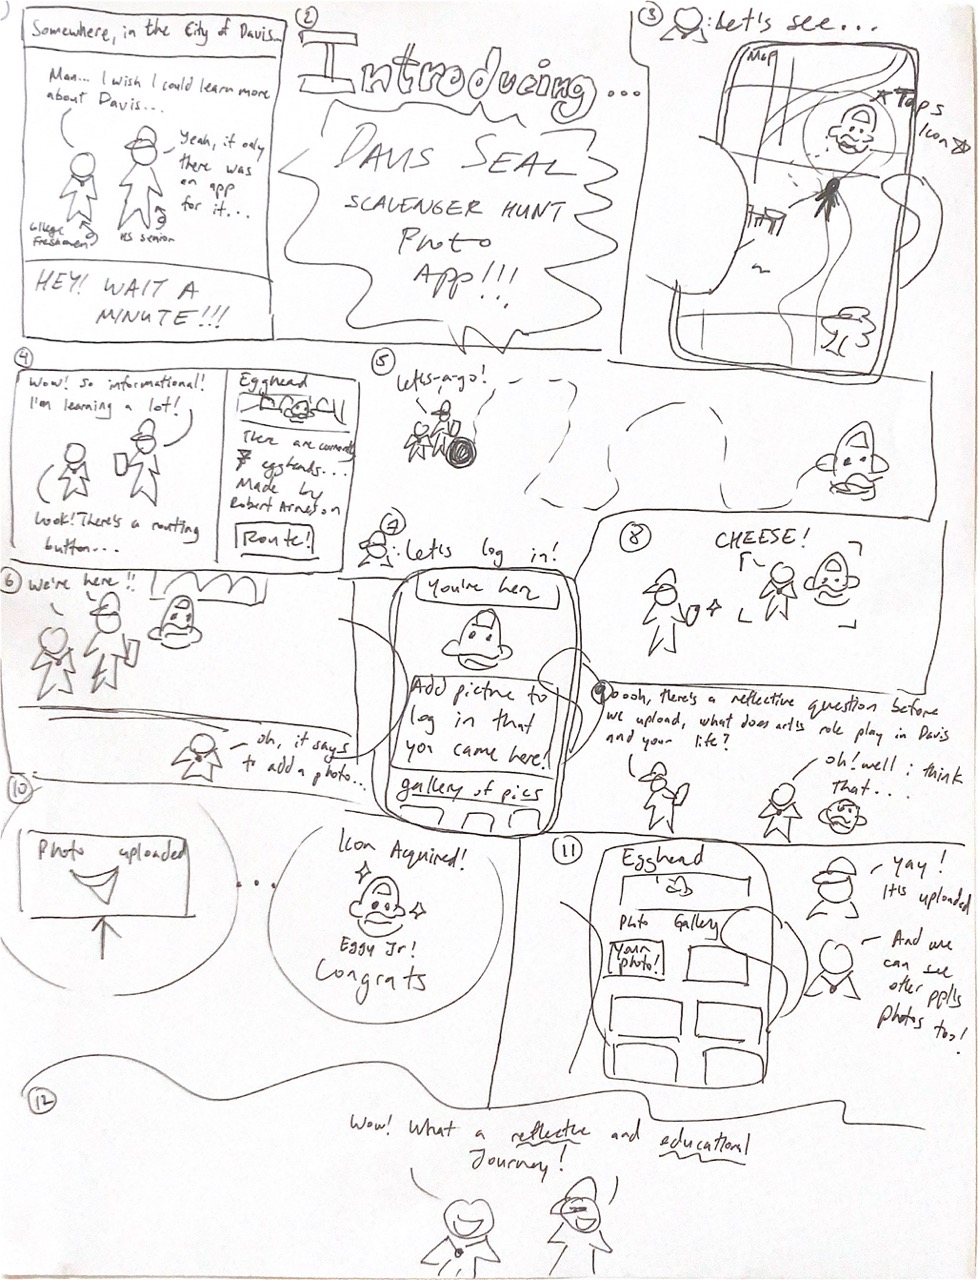 Somewhere, in the City of Davis...
Man... I wish I could learn more
about Davis...
Yeah, if only
there was
an app
for it...
College
Freshman
HS senior
HEY! WAIT A
MINUTE!!!
2
Introducing...
DAVIS SEAL
SCAVENGER HUNT
Photo
App!!!
3
: Let's see...
Map
Taps
Icon
4
Wow! So informational!
I'm learning a lot!
Look! There's a routing
button...
Egghead
There are currently
7 eggheads...
Made by
Robert Arneson
Route!
5
Lets-a-go!
6
We're here!!
oh, it says
to add a photo...
7
: Let's log in!
You're here
Add picture to
log in that
you came here!
gallery of pics
8
CHEESE!
9
Ooooh, there's a reflective question before
we upload, what does art's role play in Davis
and your life?
oh! well i think
that...
10
Photo uploaded
...
Icon Acquired!
Eggy Jr!
Congrats
11
Egghead
Photo Gallery
Your
photo!
yay!
It's uploaded
And we
can see
other ppl's
photos too!
12
Wow! What a reflective and educational
Journey!